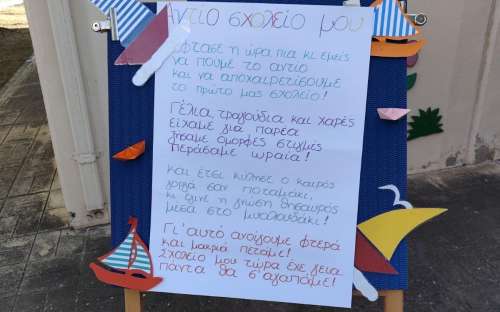 Αντίο σχολείο μου
Έφτασε η ώρα πια κι εμείς
να πούμε το αντίο
και να αποχαιρετίσουμε
το πρώτο μας σχολείο!
Γέλια, τραγούδια και χαρές
είχαμε για παρέα
ζήσαμε όμορφες στιγμές
περάσαμε ωραία!
Και έτσι κύλησε ο καιρός
γοργά σαν ποταμάκι,
κι έγινε η γνώση θησαυρός
μέσα στο μυαλουδάκι!
Γι' αυτό ανοίγουμε φτερά
και μακριά πετάμε!
Σχολείο μου τώρα έχε γεια
πάντα θα σ' αγαπάμε!